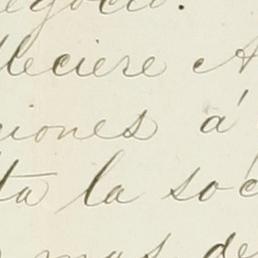 egocio.
leciere A
ciones á
ta la soc
mas de